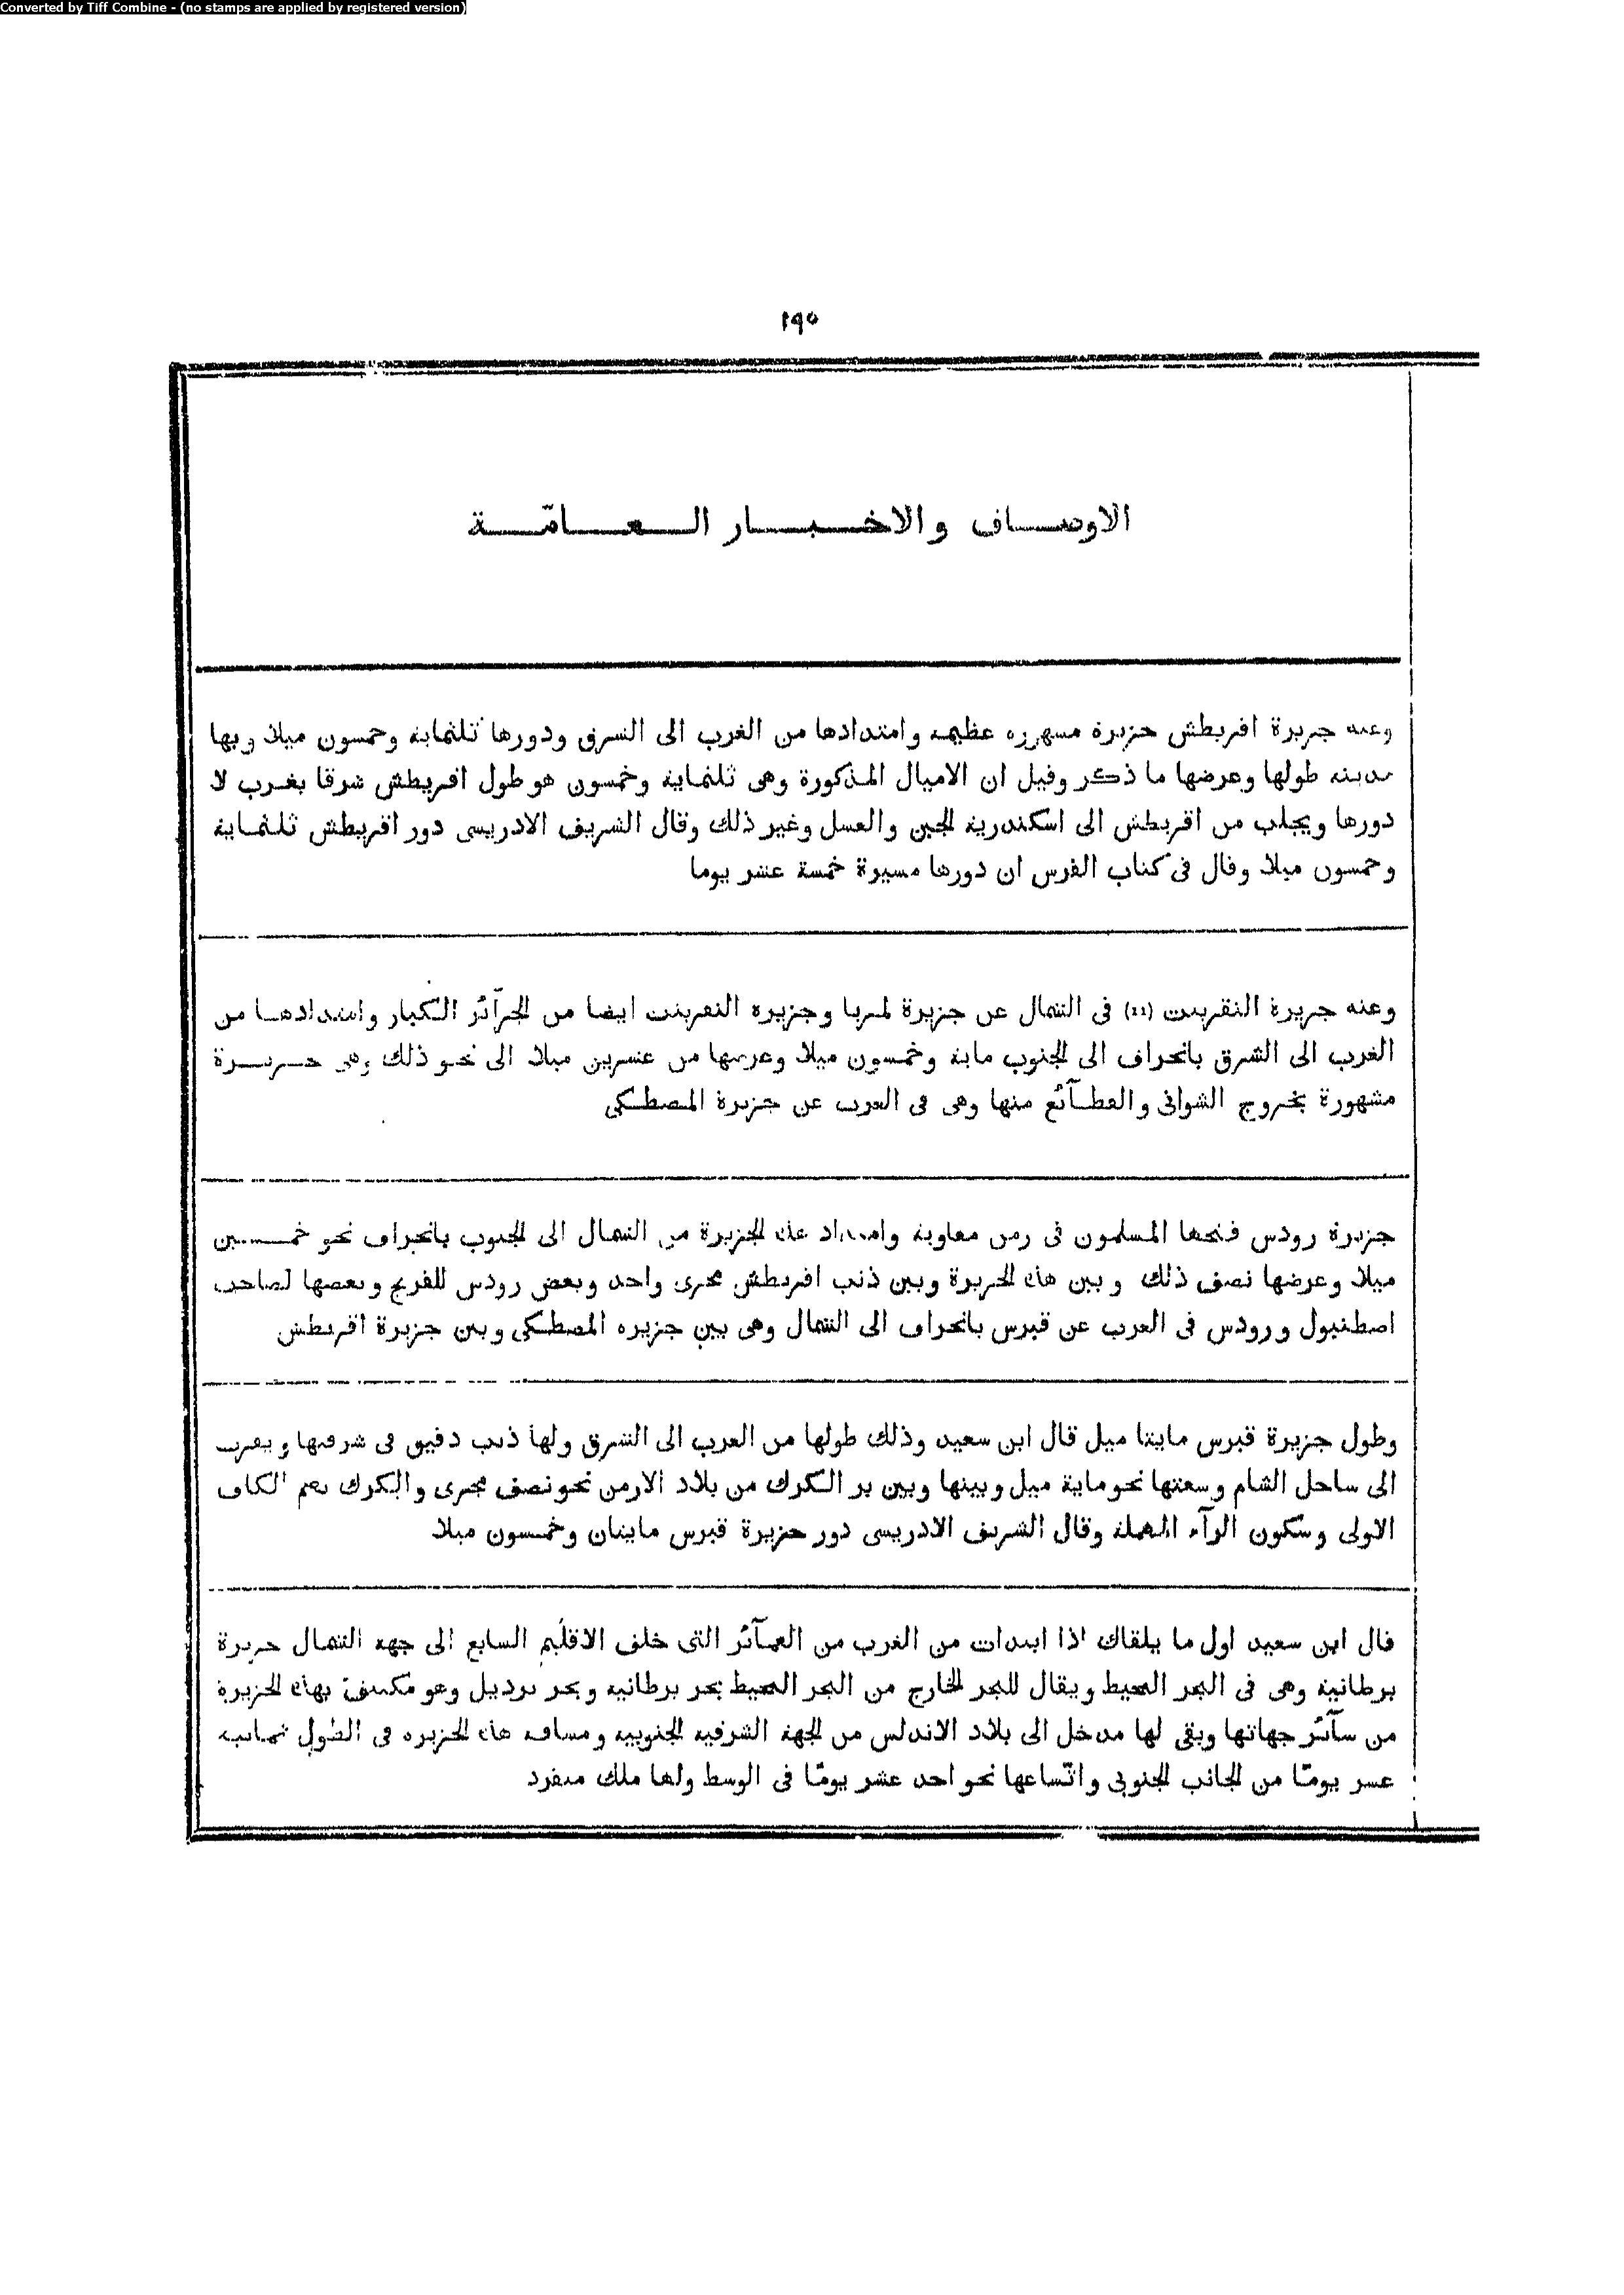 Converted by Tiff Combine - (no stamps are applied by registered version)
١٩٥
الاوصاف والاخبار العامّة
وعنه جزيرة اقريطش جزيرة مشهورة عظيمة وامتدادها من الغرب الى الشرق ودورها ثلثماية وخمسون ميلا وبها
مدينة طولها وعرضها ما ذكر وقيل ان الاميال المذكورة وهى ثلثماية وخمسون هو طول اقريطش شرقا بغرب لا
دورها ويجلب من اقريطش الى اسكندرية الجبن والعسل وغير ذلك وقال الشريف الادريسى دور اقريطش ثلثماية
وخمسون ميلا وقال فى كتاب الفرس ان دورها مسيرة خمسة عشر يوما
وعنه جزيرة النقربنت (11) فى الشمال عن جزيرة لمريا وجزيرة النقربنت ايضا من الجزآئر الكبار وامتدادها من
الغرب الى الشرق بانحراف الى الجنوب ماية وخمسون ميلا وعرضها من عشرين ميلا الى نحو ذلك وهى جزيرة
مشهورة بخروج الشوانى والقطآئع منها وهى فى الغرب عن جزيرة المصطكى
جزيرة رودس فتحها المسلمون فى زمن معاوية وامتداد هذه الجزيرة من الشمال الى الجنوب بانحراف نحو خمسين
ميلا وعرضها نصف ذلك وبين هذه الجزيرة وبين ذنب اقريطش مجرى واحد وبعض رودس للفرنج وبعضها لصاحب
اصطنبول ورودس فى الغرب عن قبرس بانحراف الى الشمال وهى بين جزيرة المصطكى وبين جزيرة اقريطش
وطول جزيرة قبرس مايتا ميل قال ابن سعيد وذلك طولها من الغرب الى الشرق ولها ذنب دقيق فى شرقيها ويقرب
الى ساحل الشام وسعتها نحو ماية ميل وبينها وبين بر الكرك من بلاد الارمن نحو نصف مجرى والكرك بضم الكاف
الاولى وسكون الرآء المهملة وقال الشريف الادريسى دور جزيرة قبرس مايتان وخمسون ميلا
قال ابن سعيد اول ما يلقاك اذا ابتدات من الغرب من العمآئر التى خلف الاقليم السابع الى جهة الشمال جزيرة
برطانية وهى فى البحر المحيط ويقال للبحر الخارج من البحر المحيط بحر برطانية وبحر برديل وهو مكتنف بهذه الجزيرة
من سآئر جهاتها وبقى لها مدخل الى بلاد الاندلس من الجهة الشرقية الجنوبية ومسافة هذه الجزيرة فى الطول ثمانية
عشر يومًا من الجانب الجنوبى واتّساعها نحو احد عشر يومًا فى الوسط ولها ملك منفرد